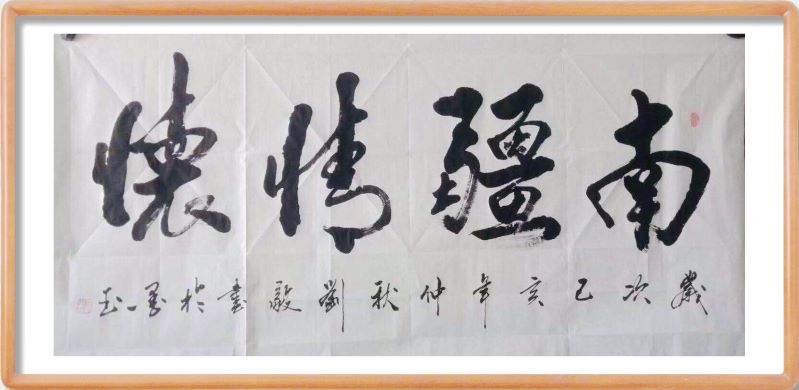 南疆情懷
歲次己亥年仲秋劉毅書於墨玉